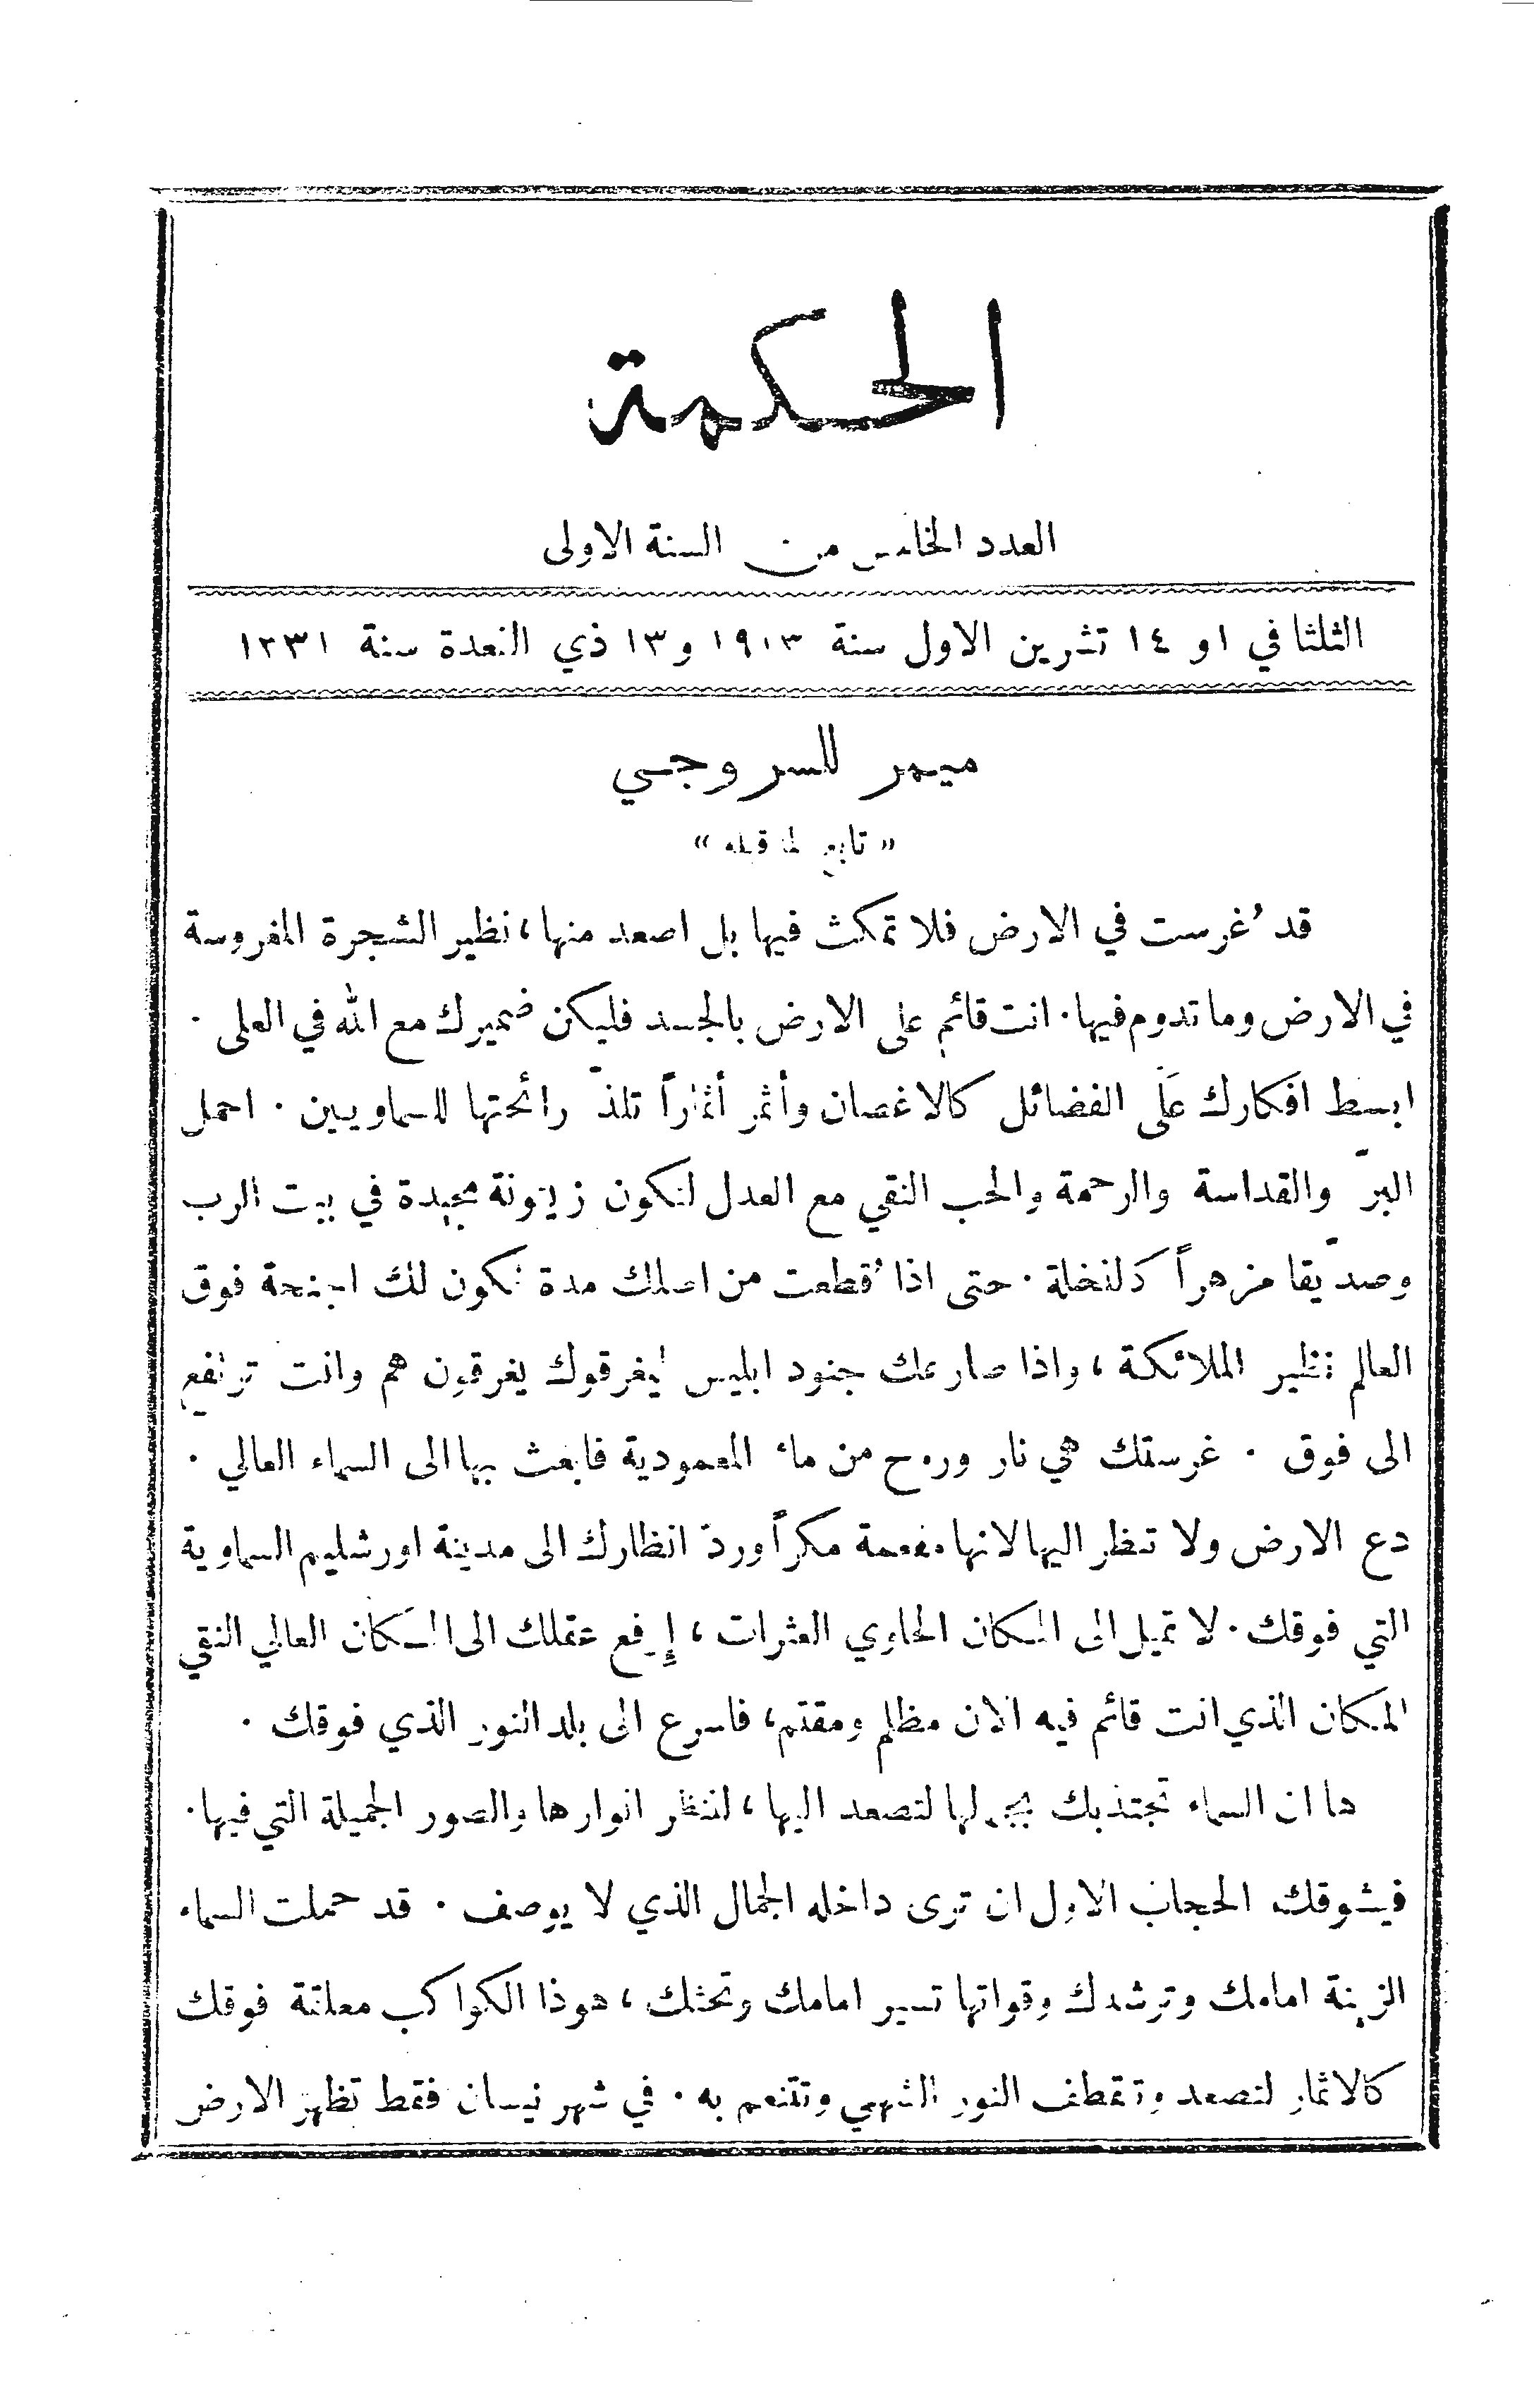 الحكمة
العدد الخامس من السنة الاولى
الثلثا في ١ و ١٤ تشرين الاول سنة ١٩١٣ و١٣ ذي القعدة سنة ١٣٣١
ميمر للسروجي
« تابع لما قبله »
قد ُغرست في الارض فلا تمكث فيها بل اصعد منها، نظير الشجرة المغروسة
في الارض وما تدوم فيها. انت قائم على الارض بالجسد فليكن ضميرك مع الله في العلى .
ابسط افكارك عَلَى الفضائل كالاغصان وأثمر أثماراً تلذّ رائحتها للسماويين . احمل
البرّ والقداسة والرحمة والحب النقي مع العدل لتكون زيتونة مجيدة في بيت الرب
وصدّيقا مزهراً كالنخلة . حتى اذا ُقطعت من اصلك مدة تكون لك اجنحة فوق
العالم نظير الملائكة ، واذا صارعك جنود ابليس ليغرقوك يغرقون هم وانت ترتفع
الى فوق . غرستك هي نار وروح من ماء المعمودية فابعث بها الى السماء العالي .
دع الارض ولا تنظر اليها لانها مفعمة مكراً وردّ انظارك الى مدينة اورشليم السماوية
التي فوقك . لا تميل الى المكان الحاوي العثرات ، إرفع عقلك الى المكان العالي النقي
المكان الذي انت قائم فيه الان مظلم ومقتم، فاسرع الى بلد النور الذي فوقك .
ها ان السماء تجتذبك بجمالها لتصعد اليها ، لتنظر انوارها والصور الجميلة التي فيها.
فيشوقك الحجاب الاول ان ترى داخله الجمال الذي لا يوصف . قد حملت السماء
الزينة امامك وترشدك وقواتها تسير امامك وتحثك ، هوذا الكواكب معلقة فوقك
كالاثمار لتصعد وتقطف النور الشهي وتتنعم به . في شهر نيسان فقط تظهر الارض